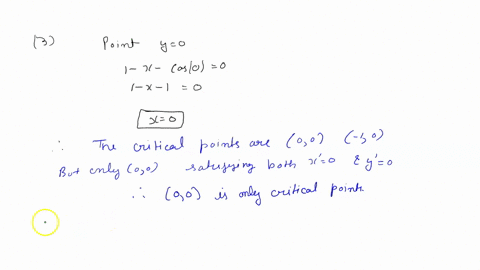 (3) Point y=0
1-x- Cos(0) =0
1-x-1 =0
x=0
∴ The critical points are (0,0) (-1,0)
But only (0,0) satisfying both x'=0 & y'=0
∴ (0,0) is only critical point